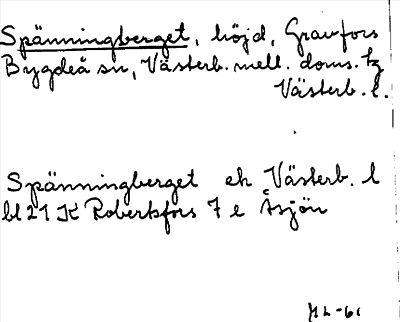 Spänningberget, höjd, Gravfors
Bygdeå sn, Västerb. mell. doms. tg
Västerb. l.
Spänningberget ek Västerb. l
bl 21 K Robertsfors 7 e Åsjön